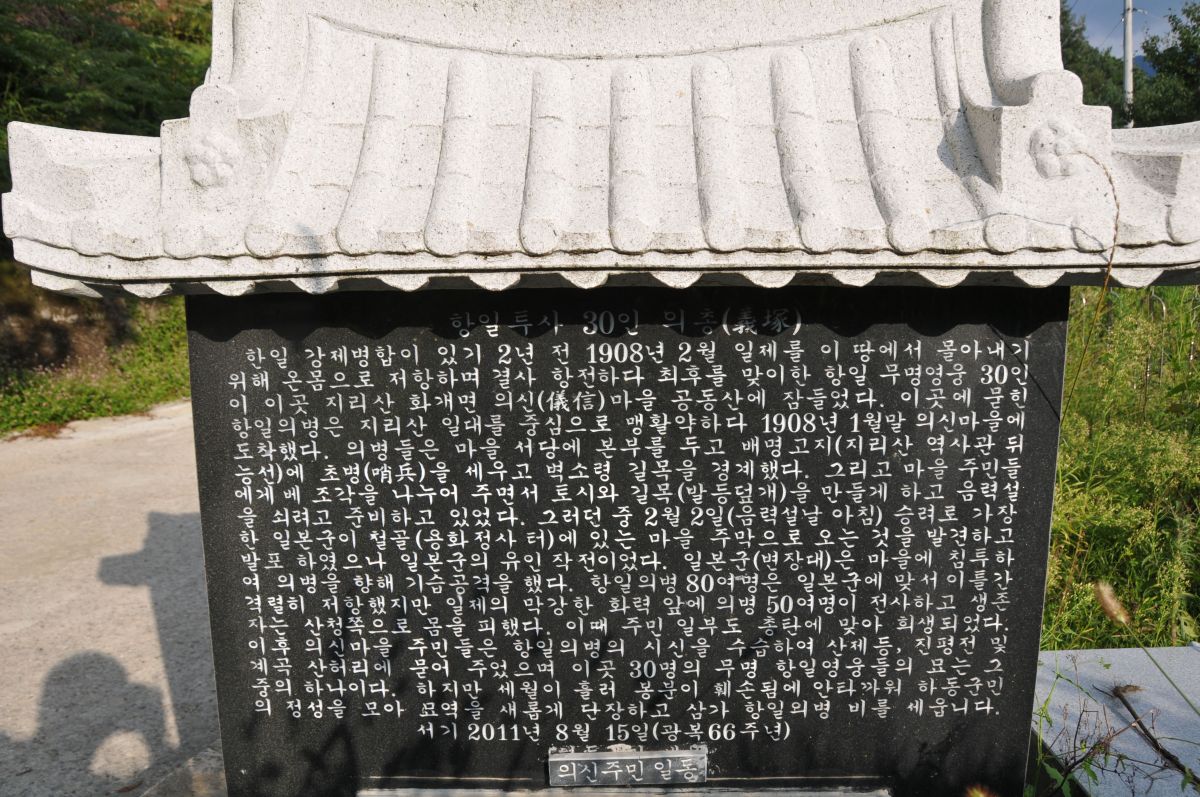 항일투사 30인 의총(義塚)
한일 강제병합이 있기 2년 전 1908년 2월 일제를 이 땅에서 몰아내기
위해 온몸으로 저항하며 결사 항전하다 최후를 맞이한 항일 무명영웅 30인
이 이곳 지리산 화개면 의신(儀信)마을 공동산에 잠들었다. 이곳에 묻힌
항일의병은 지리산 일대를 중심으로 맹활약하다 1908년 1월말 의신마을에
도착했다. 의병들은 마을 서당에 본부를 두고 배명고지(지리산 역사관 뒤
능선)에 초병(哨兵)을 세우고 벽소령 길목을 경계했다. 그리고 마을 주민들
에게 베 조각을 나누어 주면서 토시와 길목(발등덮개)을 만들게 하고 음력설
을 쇠려고 준비하고 있었다. 그러던 중 2월 2일(음력설날 아침) 승려로 가장
한 일본군이 철골(용화정사 터)에 있는 마을 주막으로 오는 것을 발견하고
발포 하였으나 일본군의 유인 작전이었다. 일본군(변장대)은 마을에 침투하
여 의병을 향해 기습공격을 했다. 항일의병 80여명은 일본군에 맞서 이틀간
격렬히 저항했지만 일제의 막강한 화력 앞에 의병 50여명이 전사하고 생존
자는 산청쪽으로 몸을 피했다. 이때 주민 일부도 총탄에 맞아 희생되었다.
이후 의신마을 주민들은 항일의병의 시신을 수습하여 산제등, 진평전 및
계곡 산허리에 묻어 주었으며 이곳 30명의 무명 항일영웅들의 묘는 그
중의 하나이다. 하지만 세월이 흘러 봉분이 훼손됨에 안타까워 하동군민
의 정성을 모아 묘역을 새롭게 단장하고 삼가 항일의병 비를 세웁니다.
서기 2011년 8월 15일(광복66주년)
의신주민 일동